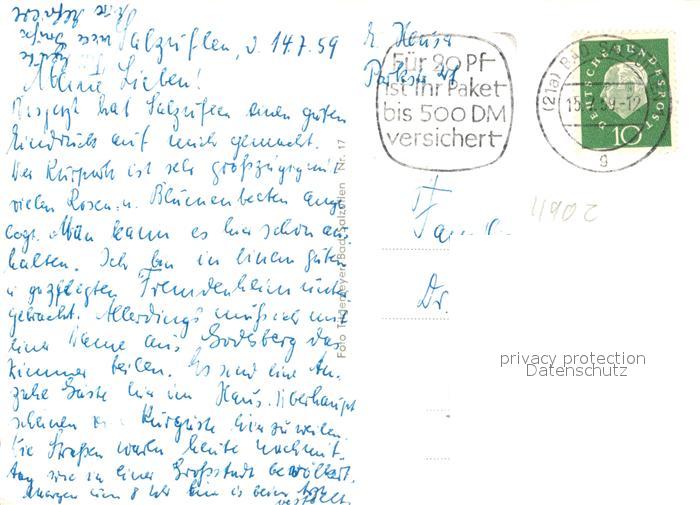 Salzuflen, d. 14.7.59
Meine Lieben!
hat Salzuflen einen guten
Eindruck auf mich gemacht.
Der Kurpark ist sehr großzügig mit
vielen Rosen u. Blumenbeeten ange-
legt. Man kann es hier schon aus-
halten. Ich bin in einem guten
u. gepflegten Fremdenheim unter-
gebracht. Allerdings muß ich mit
einer Dame aus Godesberg das
Zimmer teilen. Es sind eine An-
zahl Gäste hier im Haus. Überhaupt
scheinen Kurgäste hier zu weilen.
Die Straßen waren heute nachmit-
tag wie in einer Großstadt bevölkert.
Morgen um 8 Uhr bin ich beim Arzt
bestellt.
Foto Bad Salzuflen Nr. 17
Für 20 Pf
ist Ihr Paket
bis 500 DM
versichert
(21a) BAD
15.7.59-12
g
DEUTSCHE BUNDESPOST
10
Fam.
Dr.
privacy protection
Datenschutz